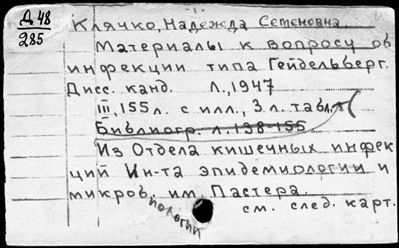 Д 48
285
Клячко, Надежда Семеновна
Материалы к вопросу об
инфекции типа Гейдельберг.
Дисс. канд. Л., 1947
III, 155 л. с илл., 3 л. табл.
Библиогр. л. 138-155
Из Отдела кишечных инфек
ций Ин-та эпидемиологии и
микробиологии им. Пастера.
см. след. карт.